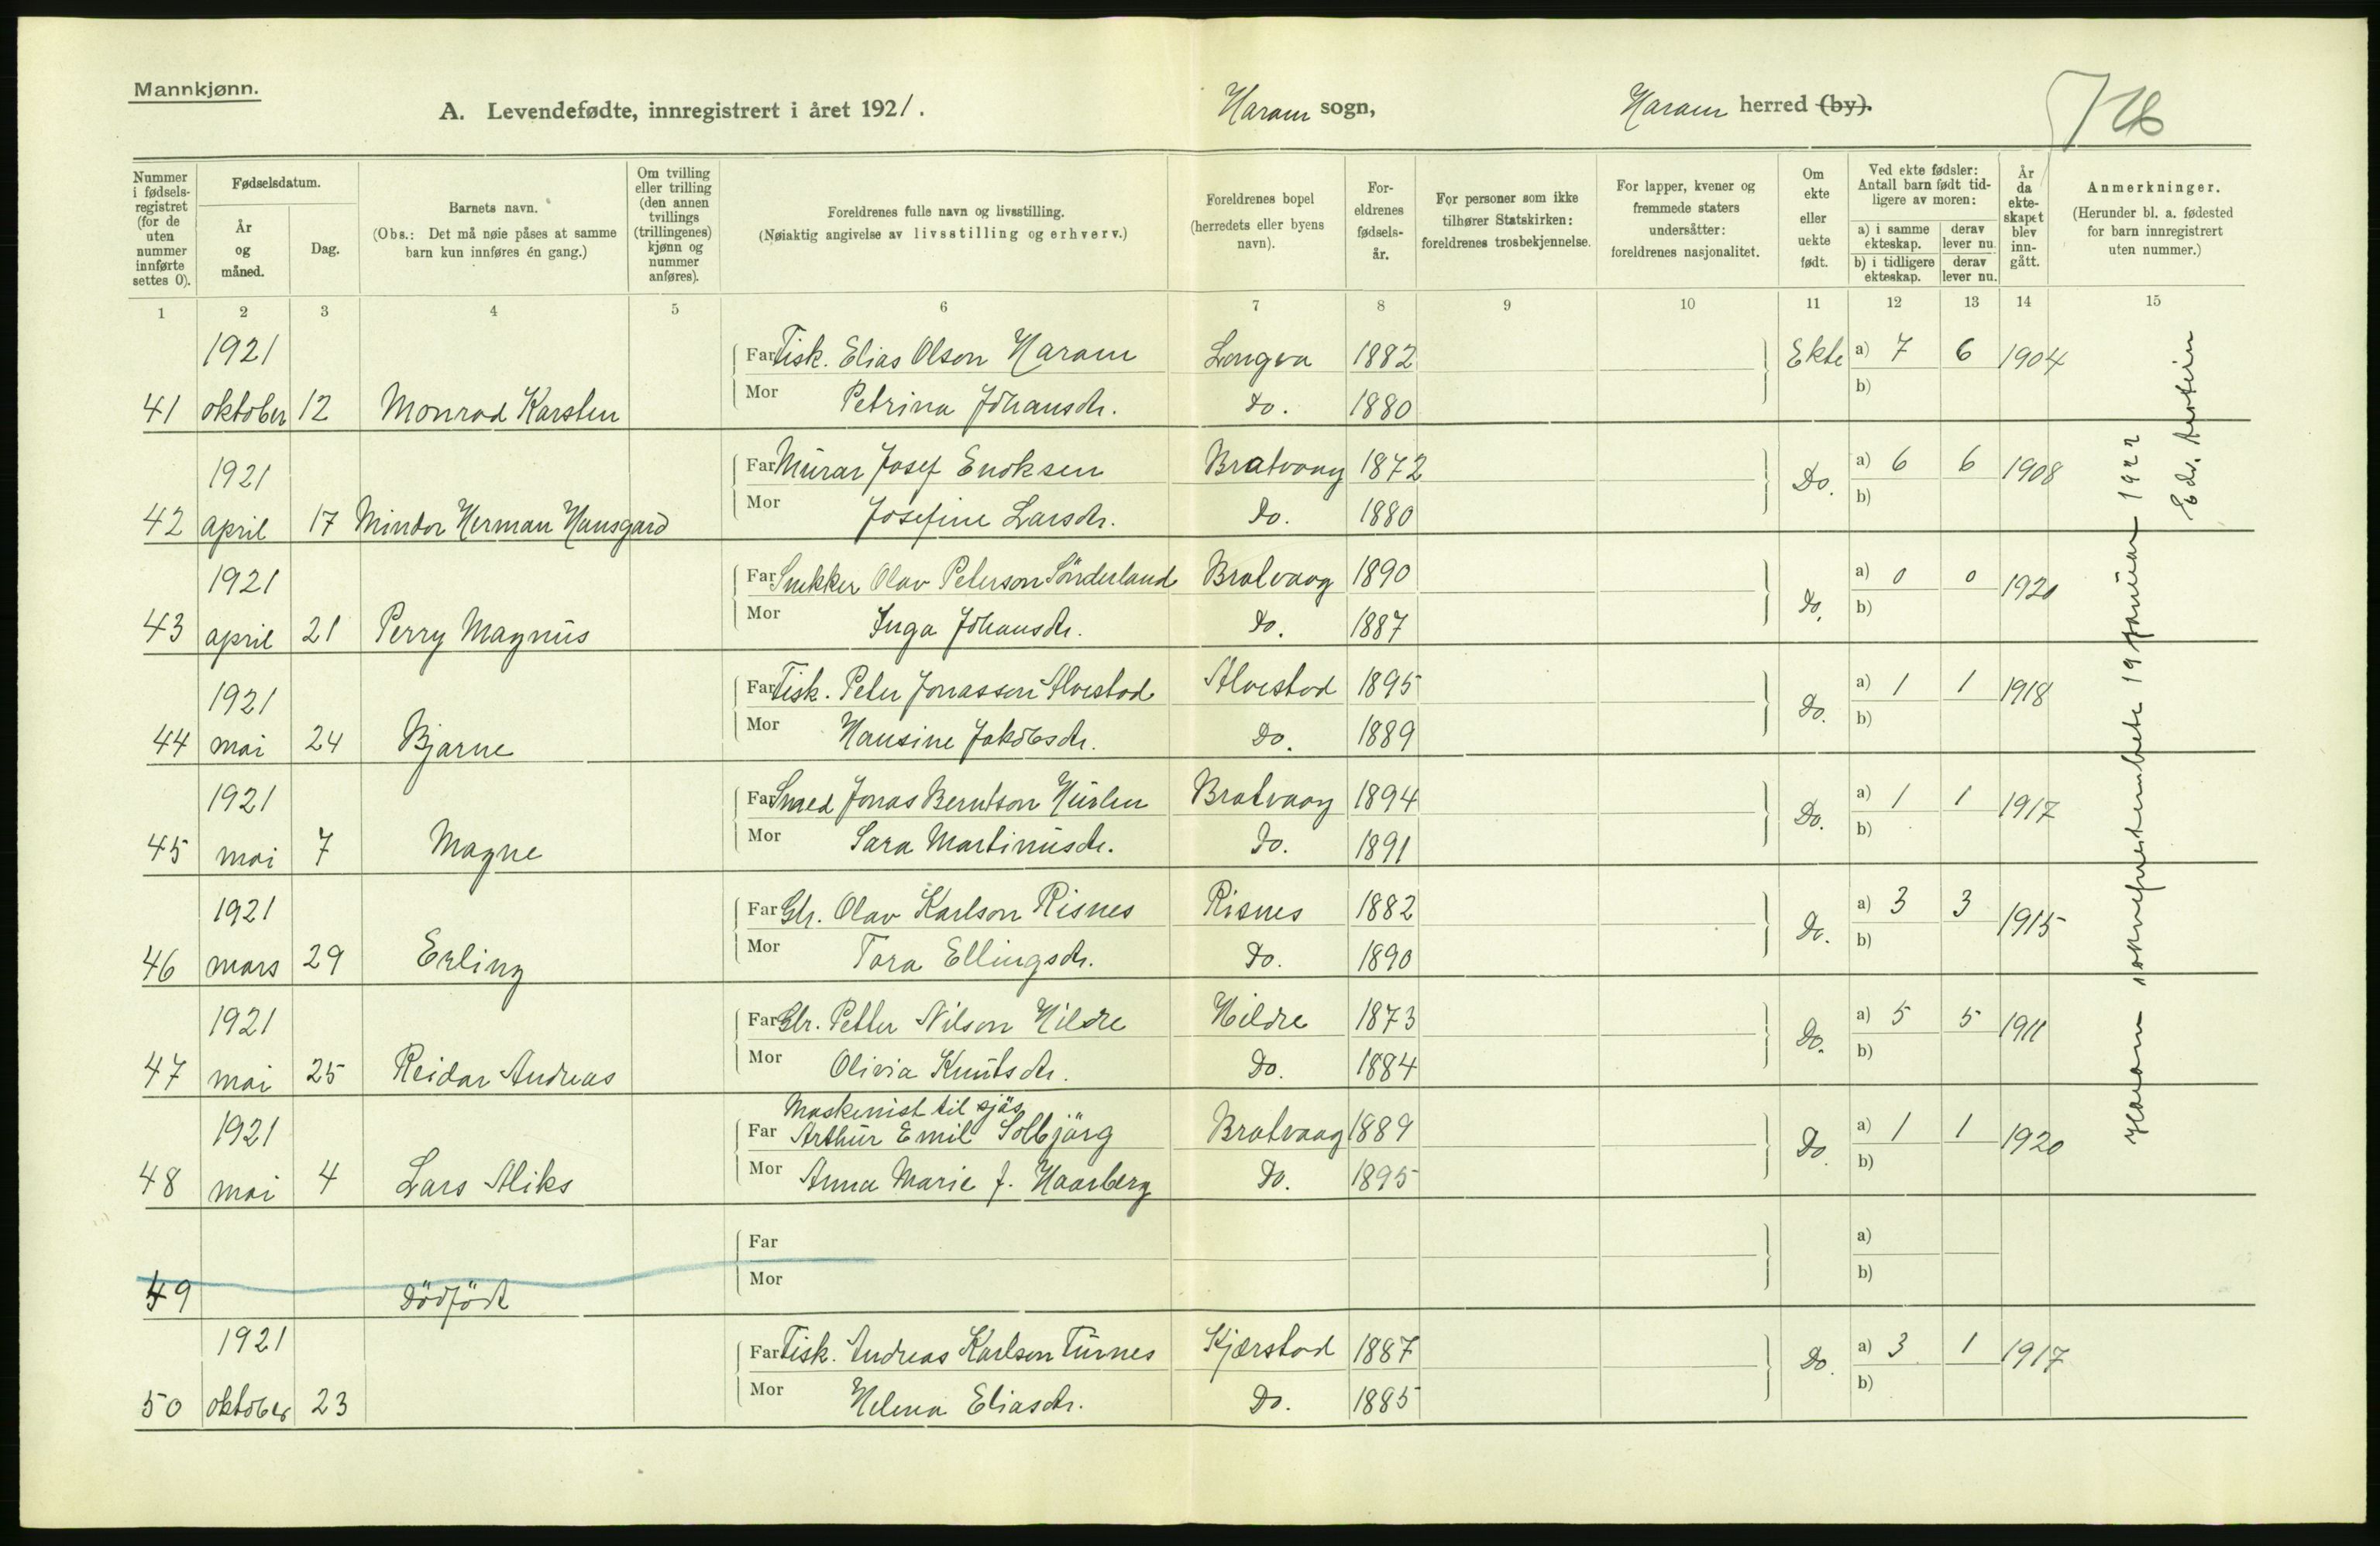 Mannkjønn.
A. Levendefødte, innregistrert i året 1921.
Haram sogn,
Haram herred (by).
Nummer i fødsels-registret (for de uten nummer innførte settes 0).
Fødselsdatum.
År og måned.
Dag.
Barnets navn.
(Obs.: Det må nøie påses at samme barn kun innføres én gang.)
Om tvilling eller trilling (den annen tvillings (trillingenes) kjønn og nummer anføres).
Foreldrenes fulle navn og livsstilling.
(Nøiaktig angivelse av livsstilling og erhverv.)
Foreldrenes bopel (herredets eller byens navn).
For-eldrenes fødsels-år.
For personer som ikke tilhører Statskirken: foreldrenes trosbekjennelse.
For lapper, kvener og fremmede staters undersåtter: foreldrenes nasjonalitet.
Om ekte eller uekte født.
Ved ekte fødsler: Antall barn født tid-ligere av moren:
a) i samme ekteskap.
derav lever nu.
b) i tidligere ekteskap.
derav lever nu.
År da ekte-skapet blev inn-gått.
Anmerkninger.
(Herunder bl. a. fødested for barn innregistrert uten nummer.)
1 2 3 4 5 6 7 8 9 10 11 12 13 14 15
1921 Far Fisk. Elias Olson Haram Longva 1882 Ekte a) 7 6 1904
41 oktober 12 Monrad Karsten Mor Petrina Johansdr. do. 1880 b)
1921 Far Murar Josef Enoksen Bratvaag 1872 Do. a) 6 6 1908
42 april 17 Mindor Herman Hansgard Mor Josefine Larsdr. do. 1880 b)
1921 Far Snekker Olav Peterson Sönderland Bratvaag 1890 do. a) 0 0 1920
43 april 21 Perry Magnus Mor Inga Johansdr. do. 1887 b)
1921 Far Fisk. Peter Jonassen Alvestad Alvestad 1895 do. a) 1 1 1918
44 mai 24 Bjarne Mor Hansine Jakobsdr. do. 1889 b)
1921 Far Smed Jonas Berntson Hurlen Bratvaag 1894 Do. a) 1 1 1917
45 mai 7 Magne Mor Sara Martinusdr. do. 1891 b)
1921 Far Gbr. Olav Karlson Risnes Risnes 1882 do. a) 3 3 1915
46 mars 29 Erling Mor Tora Ellingsdr. do. 1890 b)
1921 Far Gbr. Petter Nilson Hildre Hildre 1873 Do. a) 5 5 1911
47 mai 25 Reidar Andreas Mor Olivia Knutsdr. do. 1884 b)
Maskinist til sjös
1921 Far Arthur Emil Solbjörg Bratvaag 1889 do. a) 1 1 1920
48 mai 4 Lars Aliks Mor Anna Marie J. Haarberg do. 1895 b)
Far a)
49 dödfödt Mor b)
1921 Far Fisk. Andreas Karlson Turnes Kjærstad 1887 do. a) 3 1 1917
50 oktober 23 Mor Helena Eliasdr. do. 1885 b)
Haram sokneprestembete 19 januar 1922